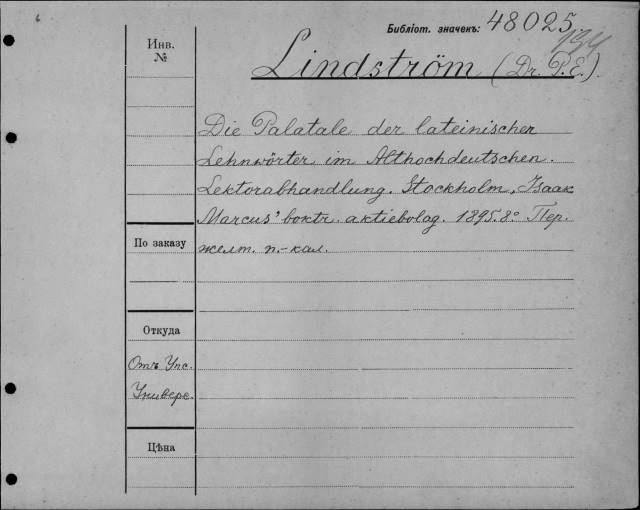 6
Библіот. значекъ: 48025
134
Инв.
№
Lindström (Dr. P. E.).
Die Palatale der lateinischer
Lehnwörter im Althochdeutschen.
Lektorabhandlung. Stockholm, Isaak
Marcus' boktr. aktiebolag. 1895. 8° Пер.
желт. п.-кал.
По заказу
Откуда
Отъ Упс.
Универс.
Цѣна